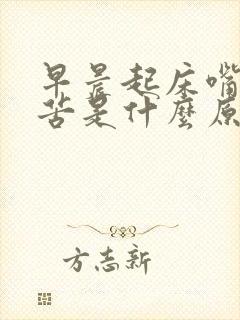 早晨起床嘴
苦是什麼原
方志新